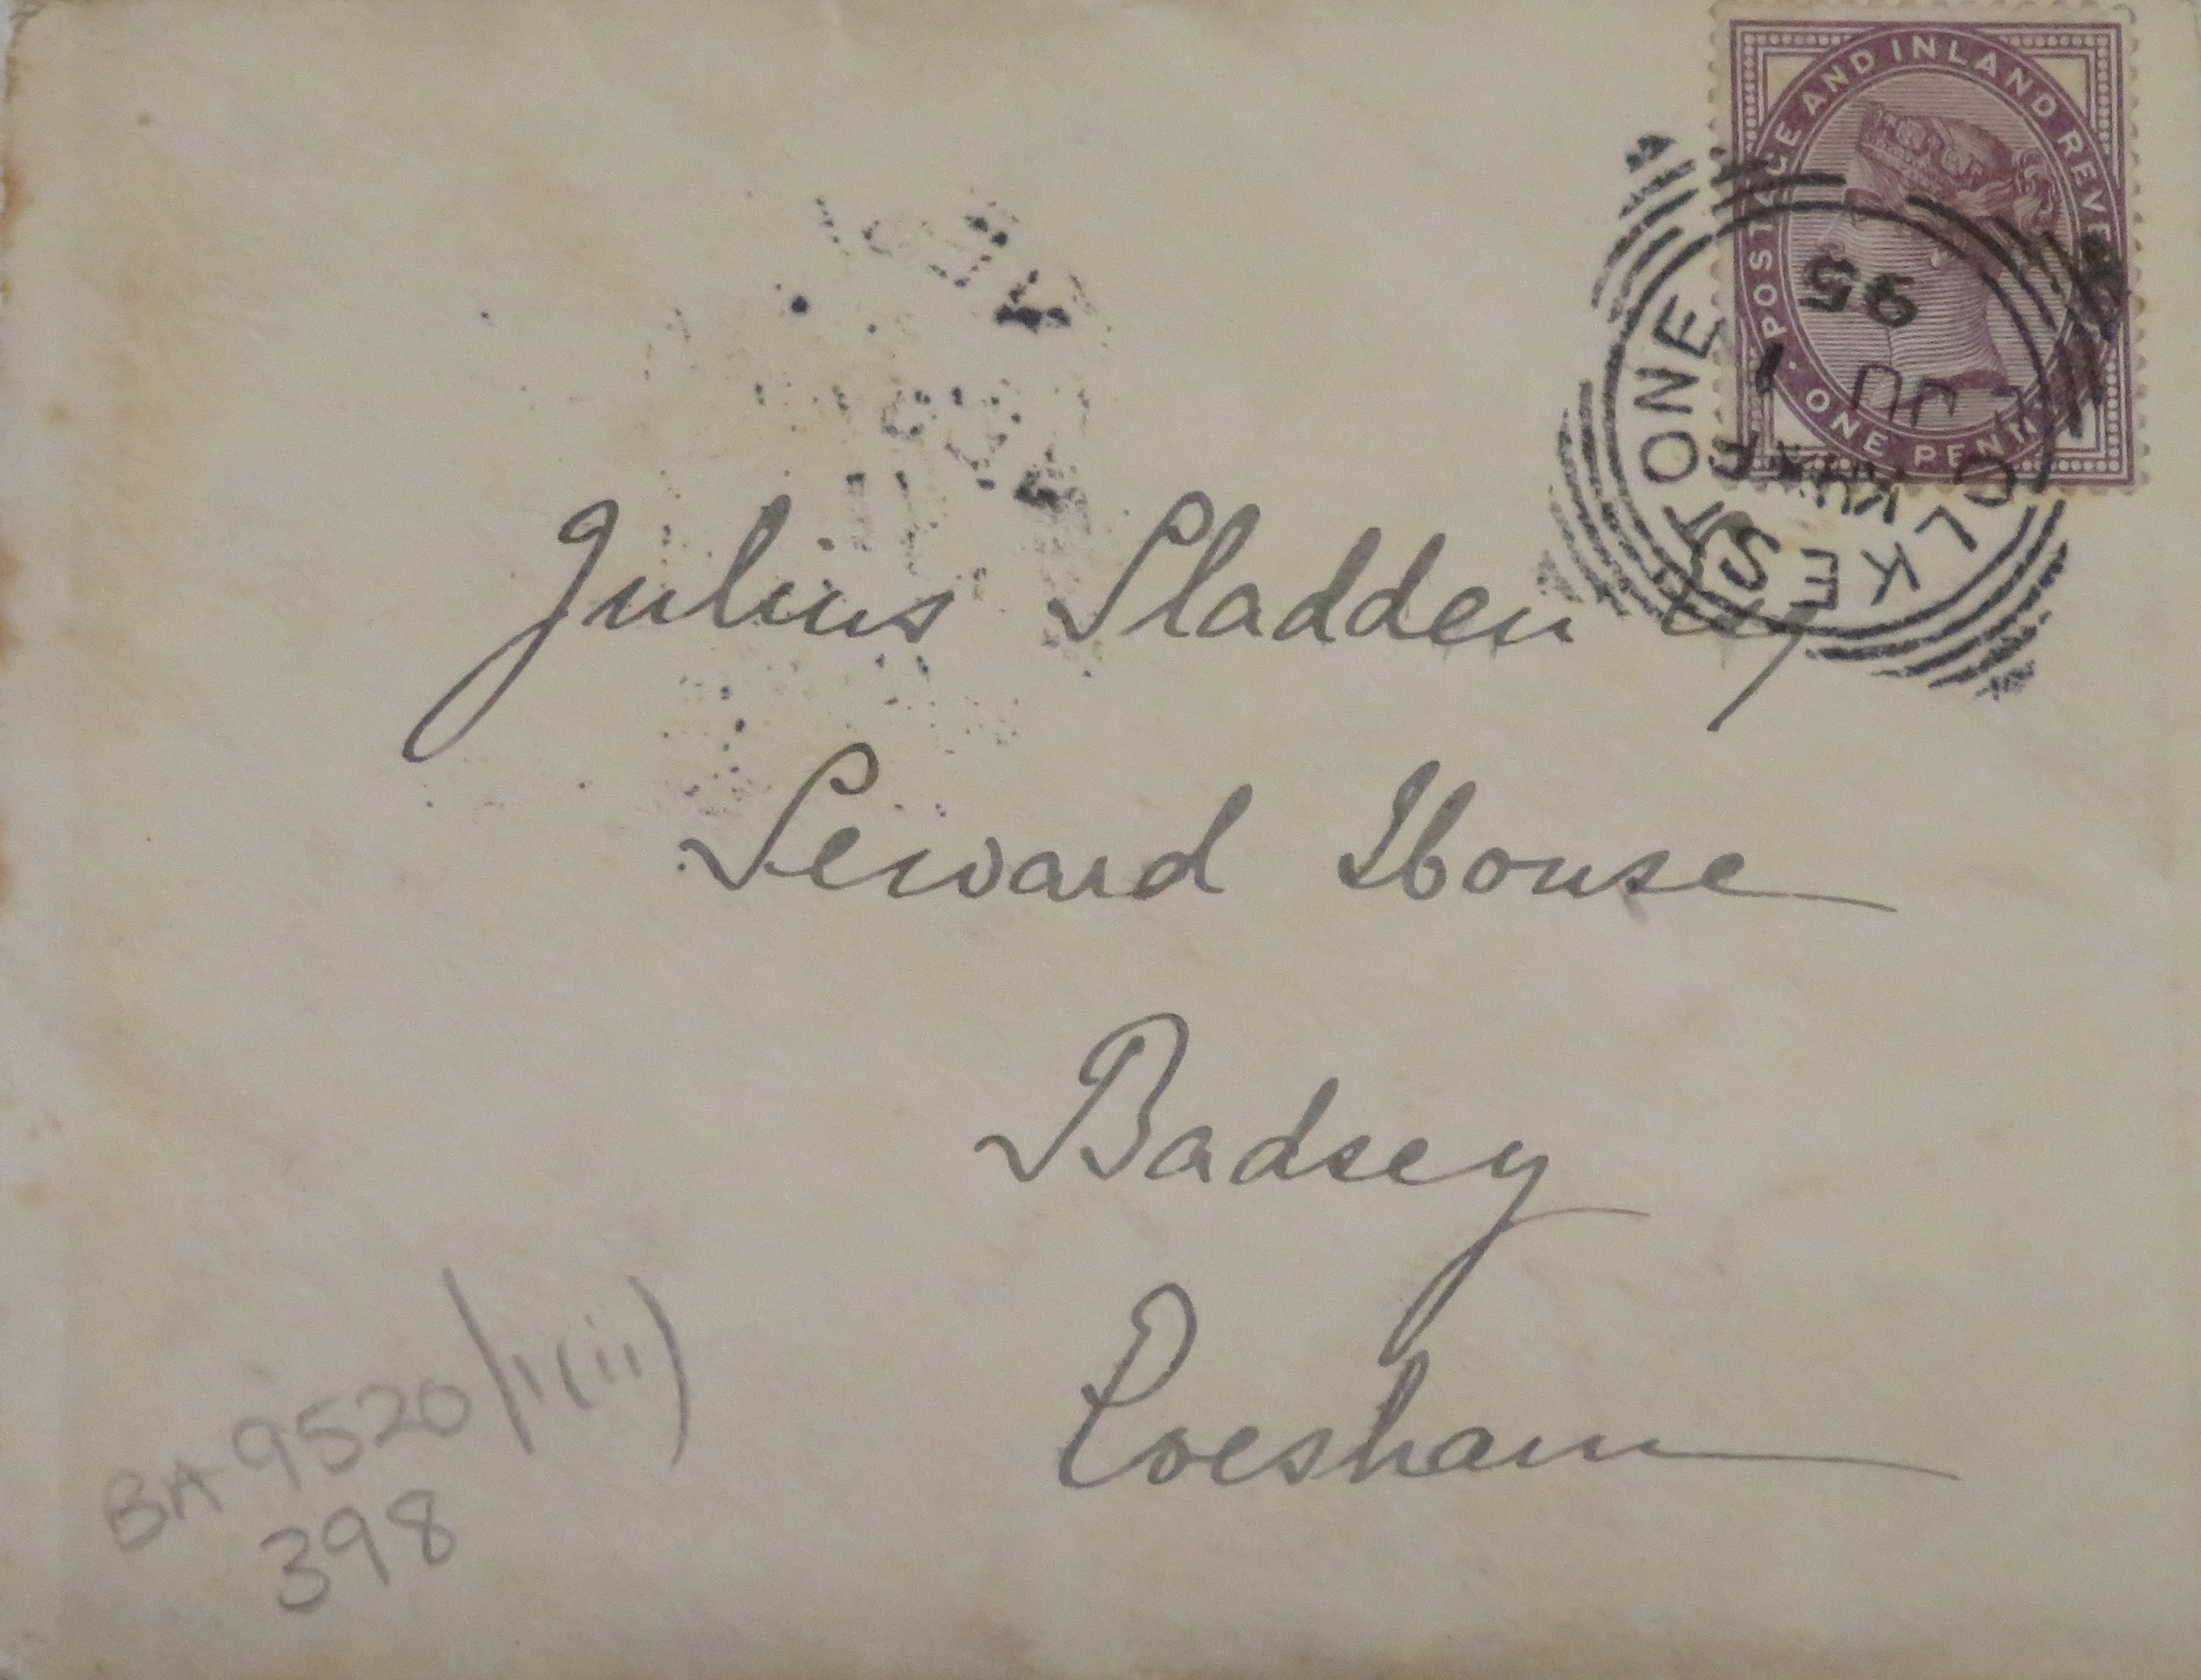 POSTAGE AND INLAND REVE
ONE PENNY
FOLKESTONE
JU 1
95
Julius Sladden Esq
Seward House
Badsey
Evesham
BA 9520/1(ii)
398